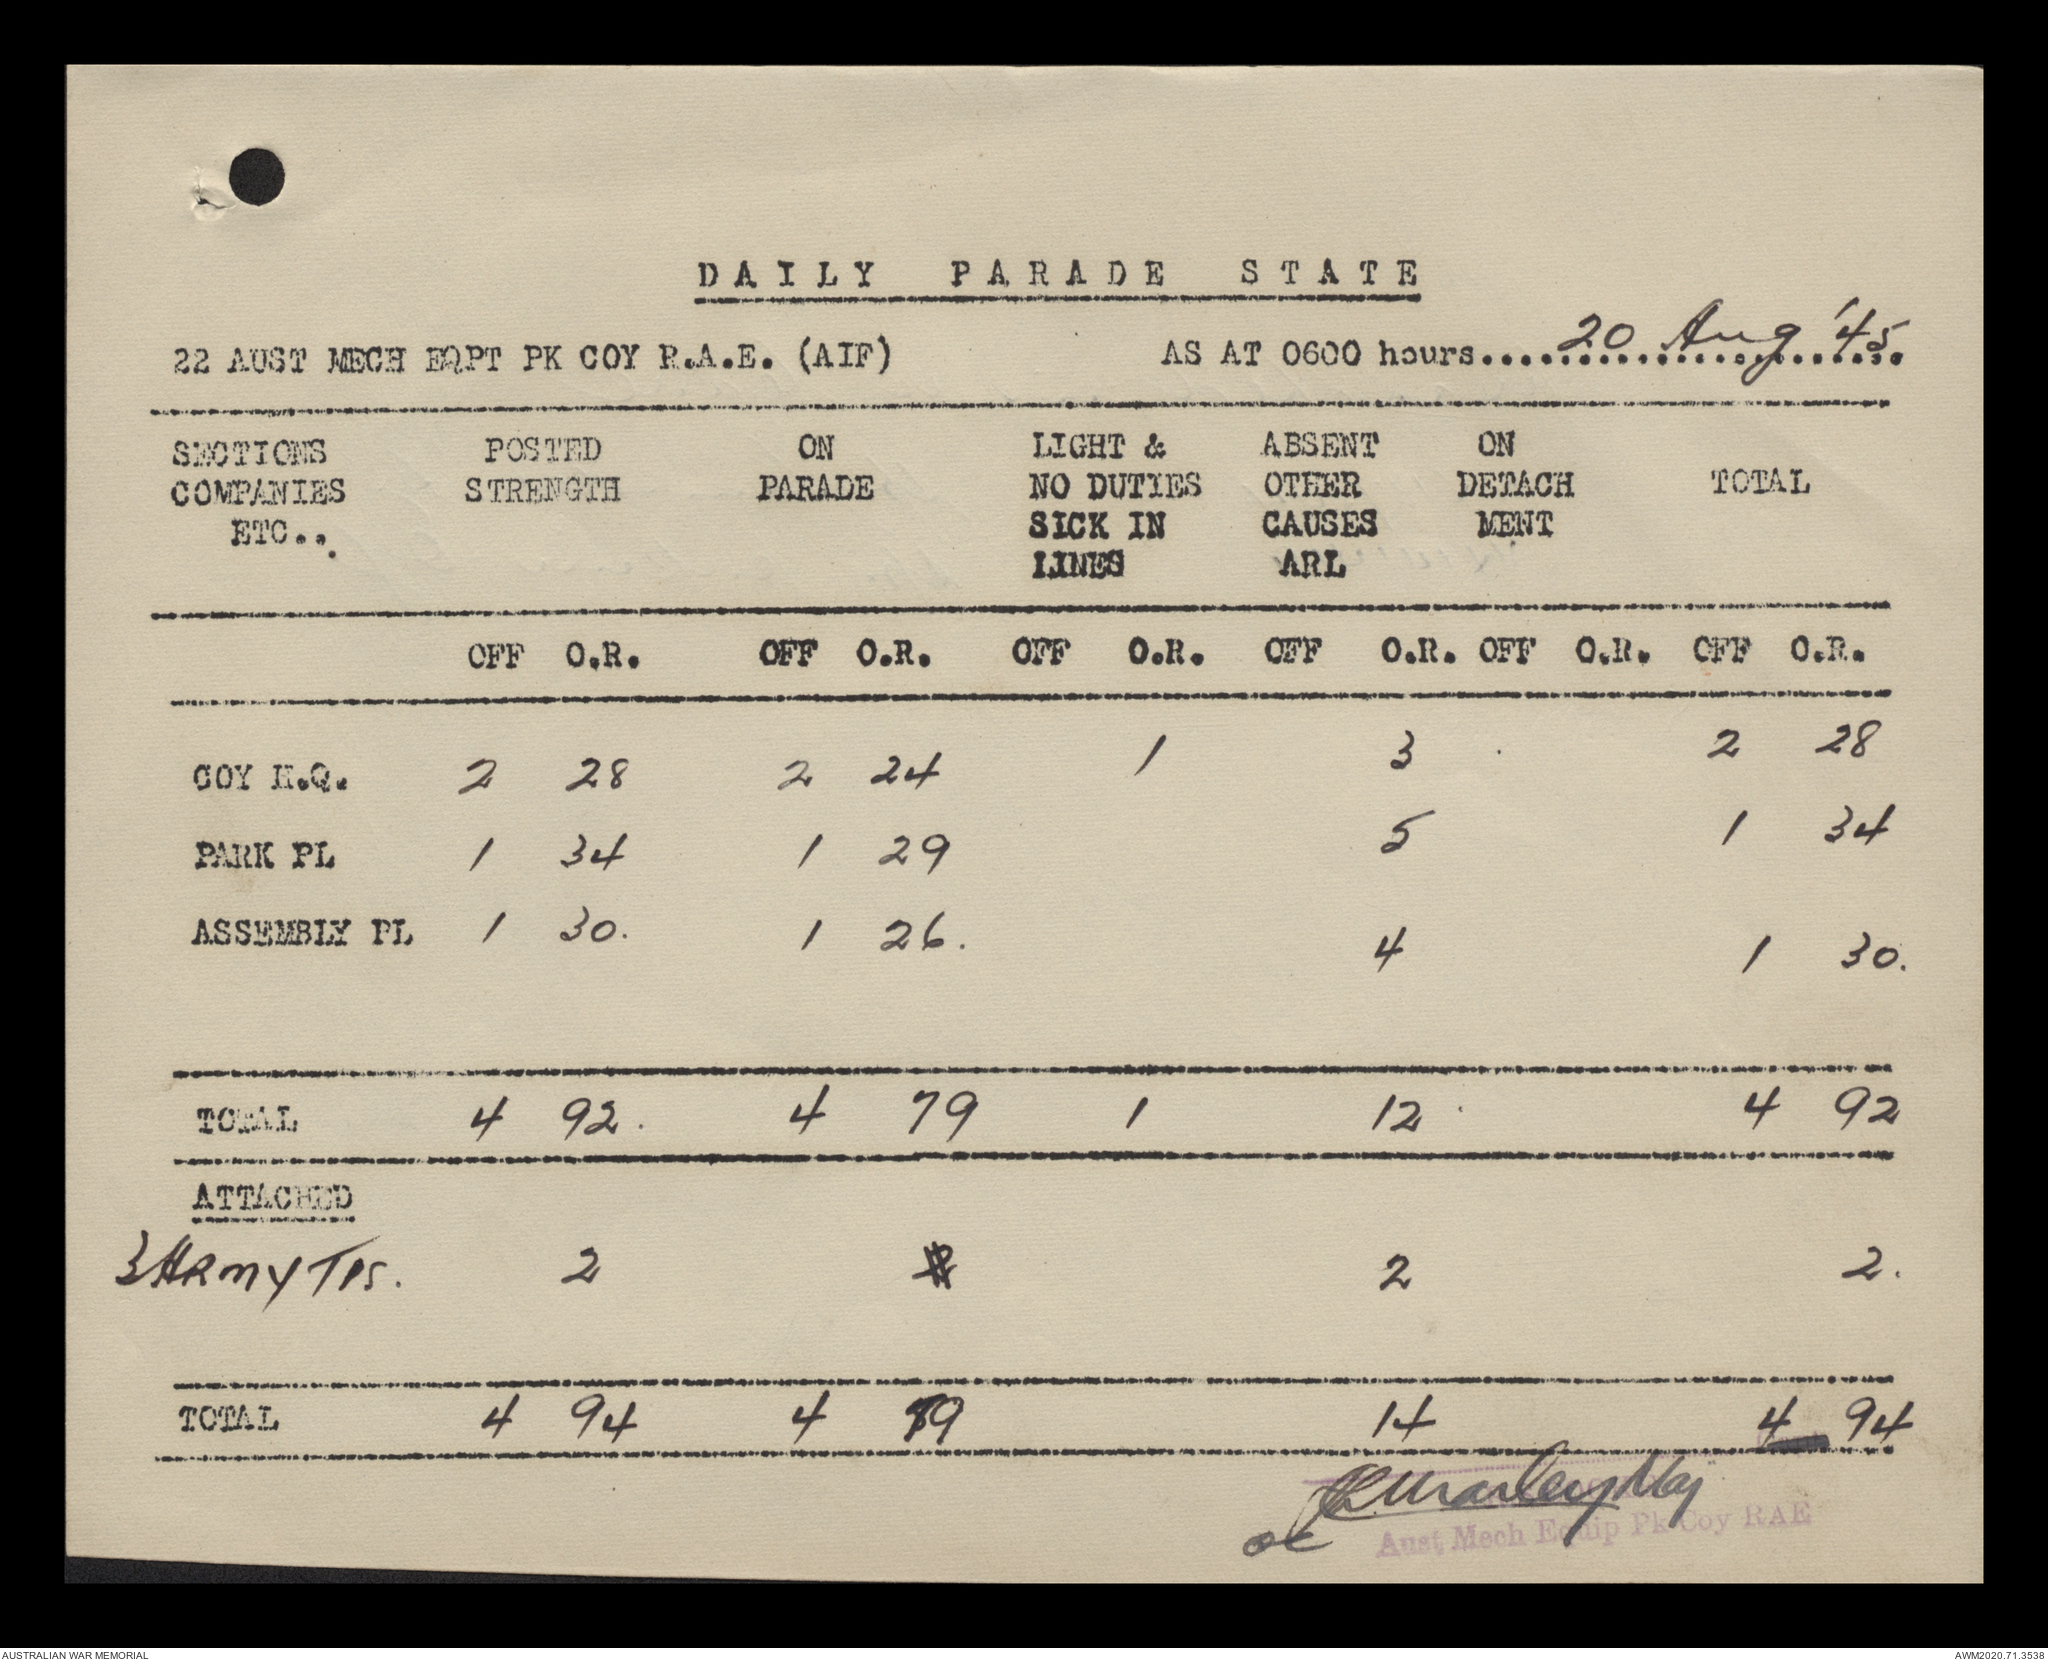 DAILY PARADE STATE
22 AUST MECH EQPT PK COY R.A.E. (AIF) AS AT 0600 hours......20 Aug '45
SECTIONS POSTED ON LIGHT & ABSENT ON
COMPANIES STRENGTH PARADE NO DUTIES OTHER DETACH TOTAL
ETC... SICK IN CAUSES MENT
LINES ARL
OFF O.R. OFF O.R. OFF O.R. OFF O.R. OFF O.R. OFF O.R.
COY H.Q. 2 28 2 24 1 3 2 28
PARK PL 1 34 1 29 5 1 34
ASSEMBLY PL 1 30. 1 26. 4 1 30.
TOTAL 4 92. 4 79 1 12 4 92
ATTACHED
3 ARMY TPS. 2 2 2.
TOTAL 4 94 4 79 14 4 94
Maj
OC Aust Mech Equip Pk Coy RAE
AUSTRALIAN WAR MEMORIAL AWM2020.71.3538